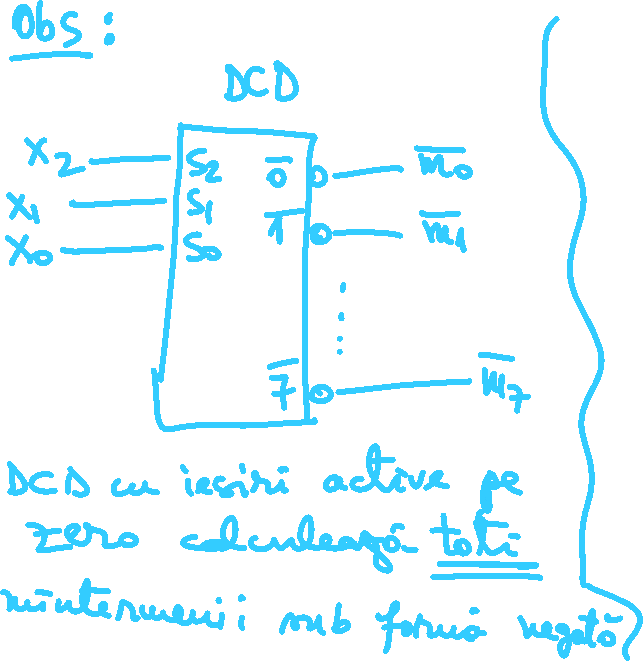 Obs:
DCD
X₂ S₂ 0̅ m̅₀
X₁ S₁ 1̅ m̅₁
X₀ S₀
7̅ m̅₇
DCD cu ieșiri active pe
zero calculează toți
mintermenii sub formă negată